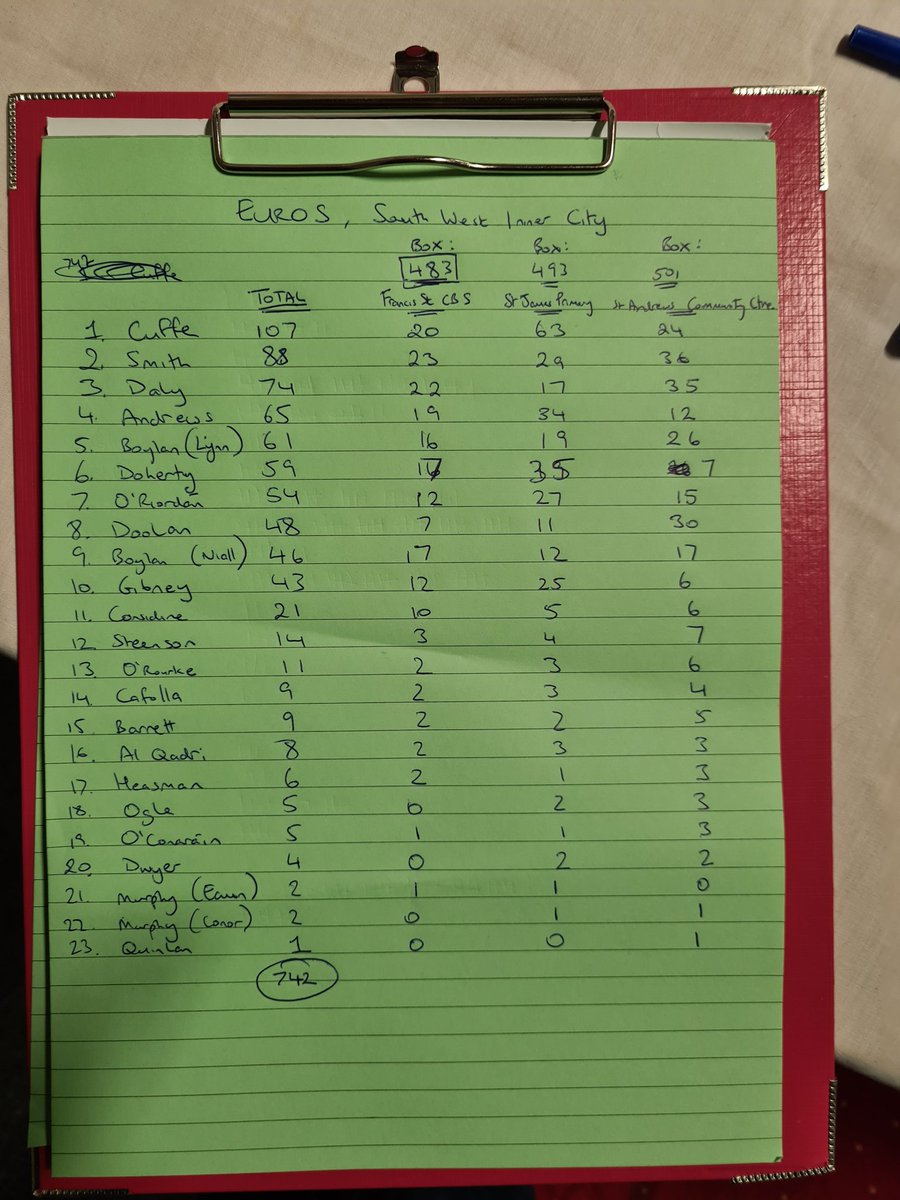 EUROS, South West Inner City
Box: Box: Box:
742 Cuffe 483 493 501
TOTAL Francis St CBS St James Primary St Andrews Community Ctre
1. Cuffe 107 20 63 24
2. Smith 88 23 29 36
3. Daly 74 22 17 35
4. Andrews 65 19 34 12
5. Boylan (Lynn) 61 16 19 26
6. Doherty 59 17 35 7
7. O'Riordán 54 12 27 15
8. Doolan 48 7 11 30
9. Boylan (Niall) 46 17 12 17
10. Gibney 43 12 25 6
11. Considine 21 10 5 6
12 Steenson 14 3 4 7
13. O'Rourke 11 2 3 6
14. Cafolla 9 2 3 4
15. Barrett 9 2 2 5
16. Al Qadri 8 2 3 3
17. Heasman 6 2 1 3
18. Ogle 5 0 2 3
19. O'Conaráin 5 1 1 3
20. Dwyer 4 0 2 2
21. Murphy (Eamon) 2 1 1 0
22. Murphy (Conor) 2 0 1 1
23. Quinlan 1 0 0 1
742